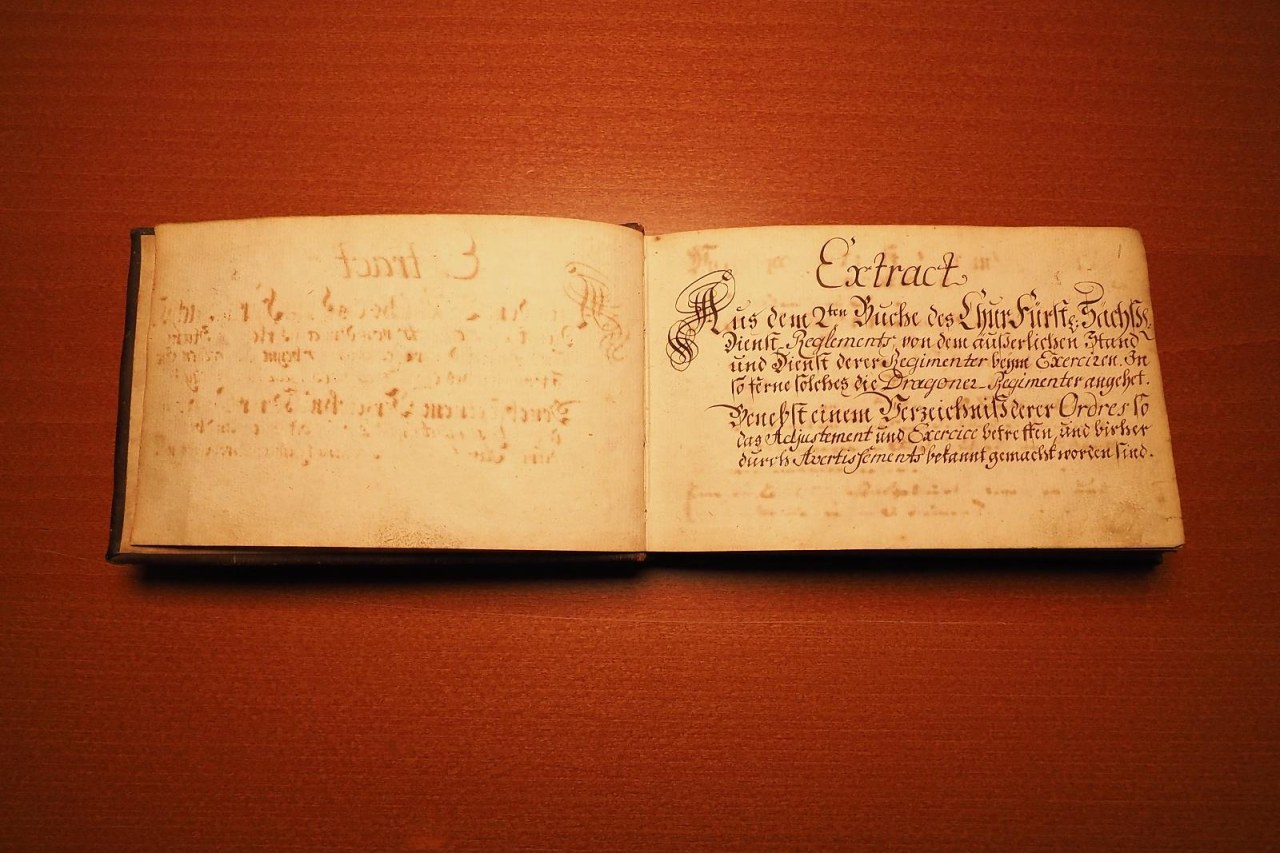 Extract
Aus dem 2ten Buche des ChurFürstl: Sächsl:
Dienst-Reglements, von dem äußerlichen Stand
und Dienst derer Regimenter beym Exerciren. In
so ferne solches die Dragoner-Regimenter angehet.
Benebst einem Verzeichniß derer Ordres so
das Adjustement und Exercice betreffen, und bisher
durch Avertissements bekannt gemacht worden sind.